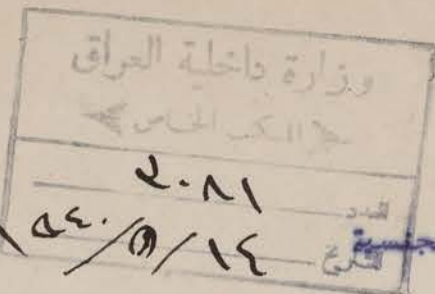 وزارة داخلية العراق
المكتب الخاص
العدد ٢٠٨١
التاريخ ١٤/٥/١٩٤٠
جنسية